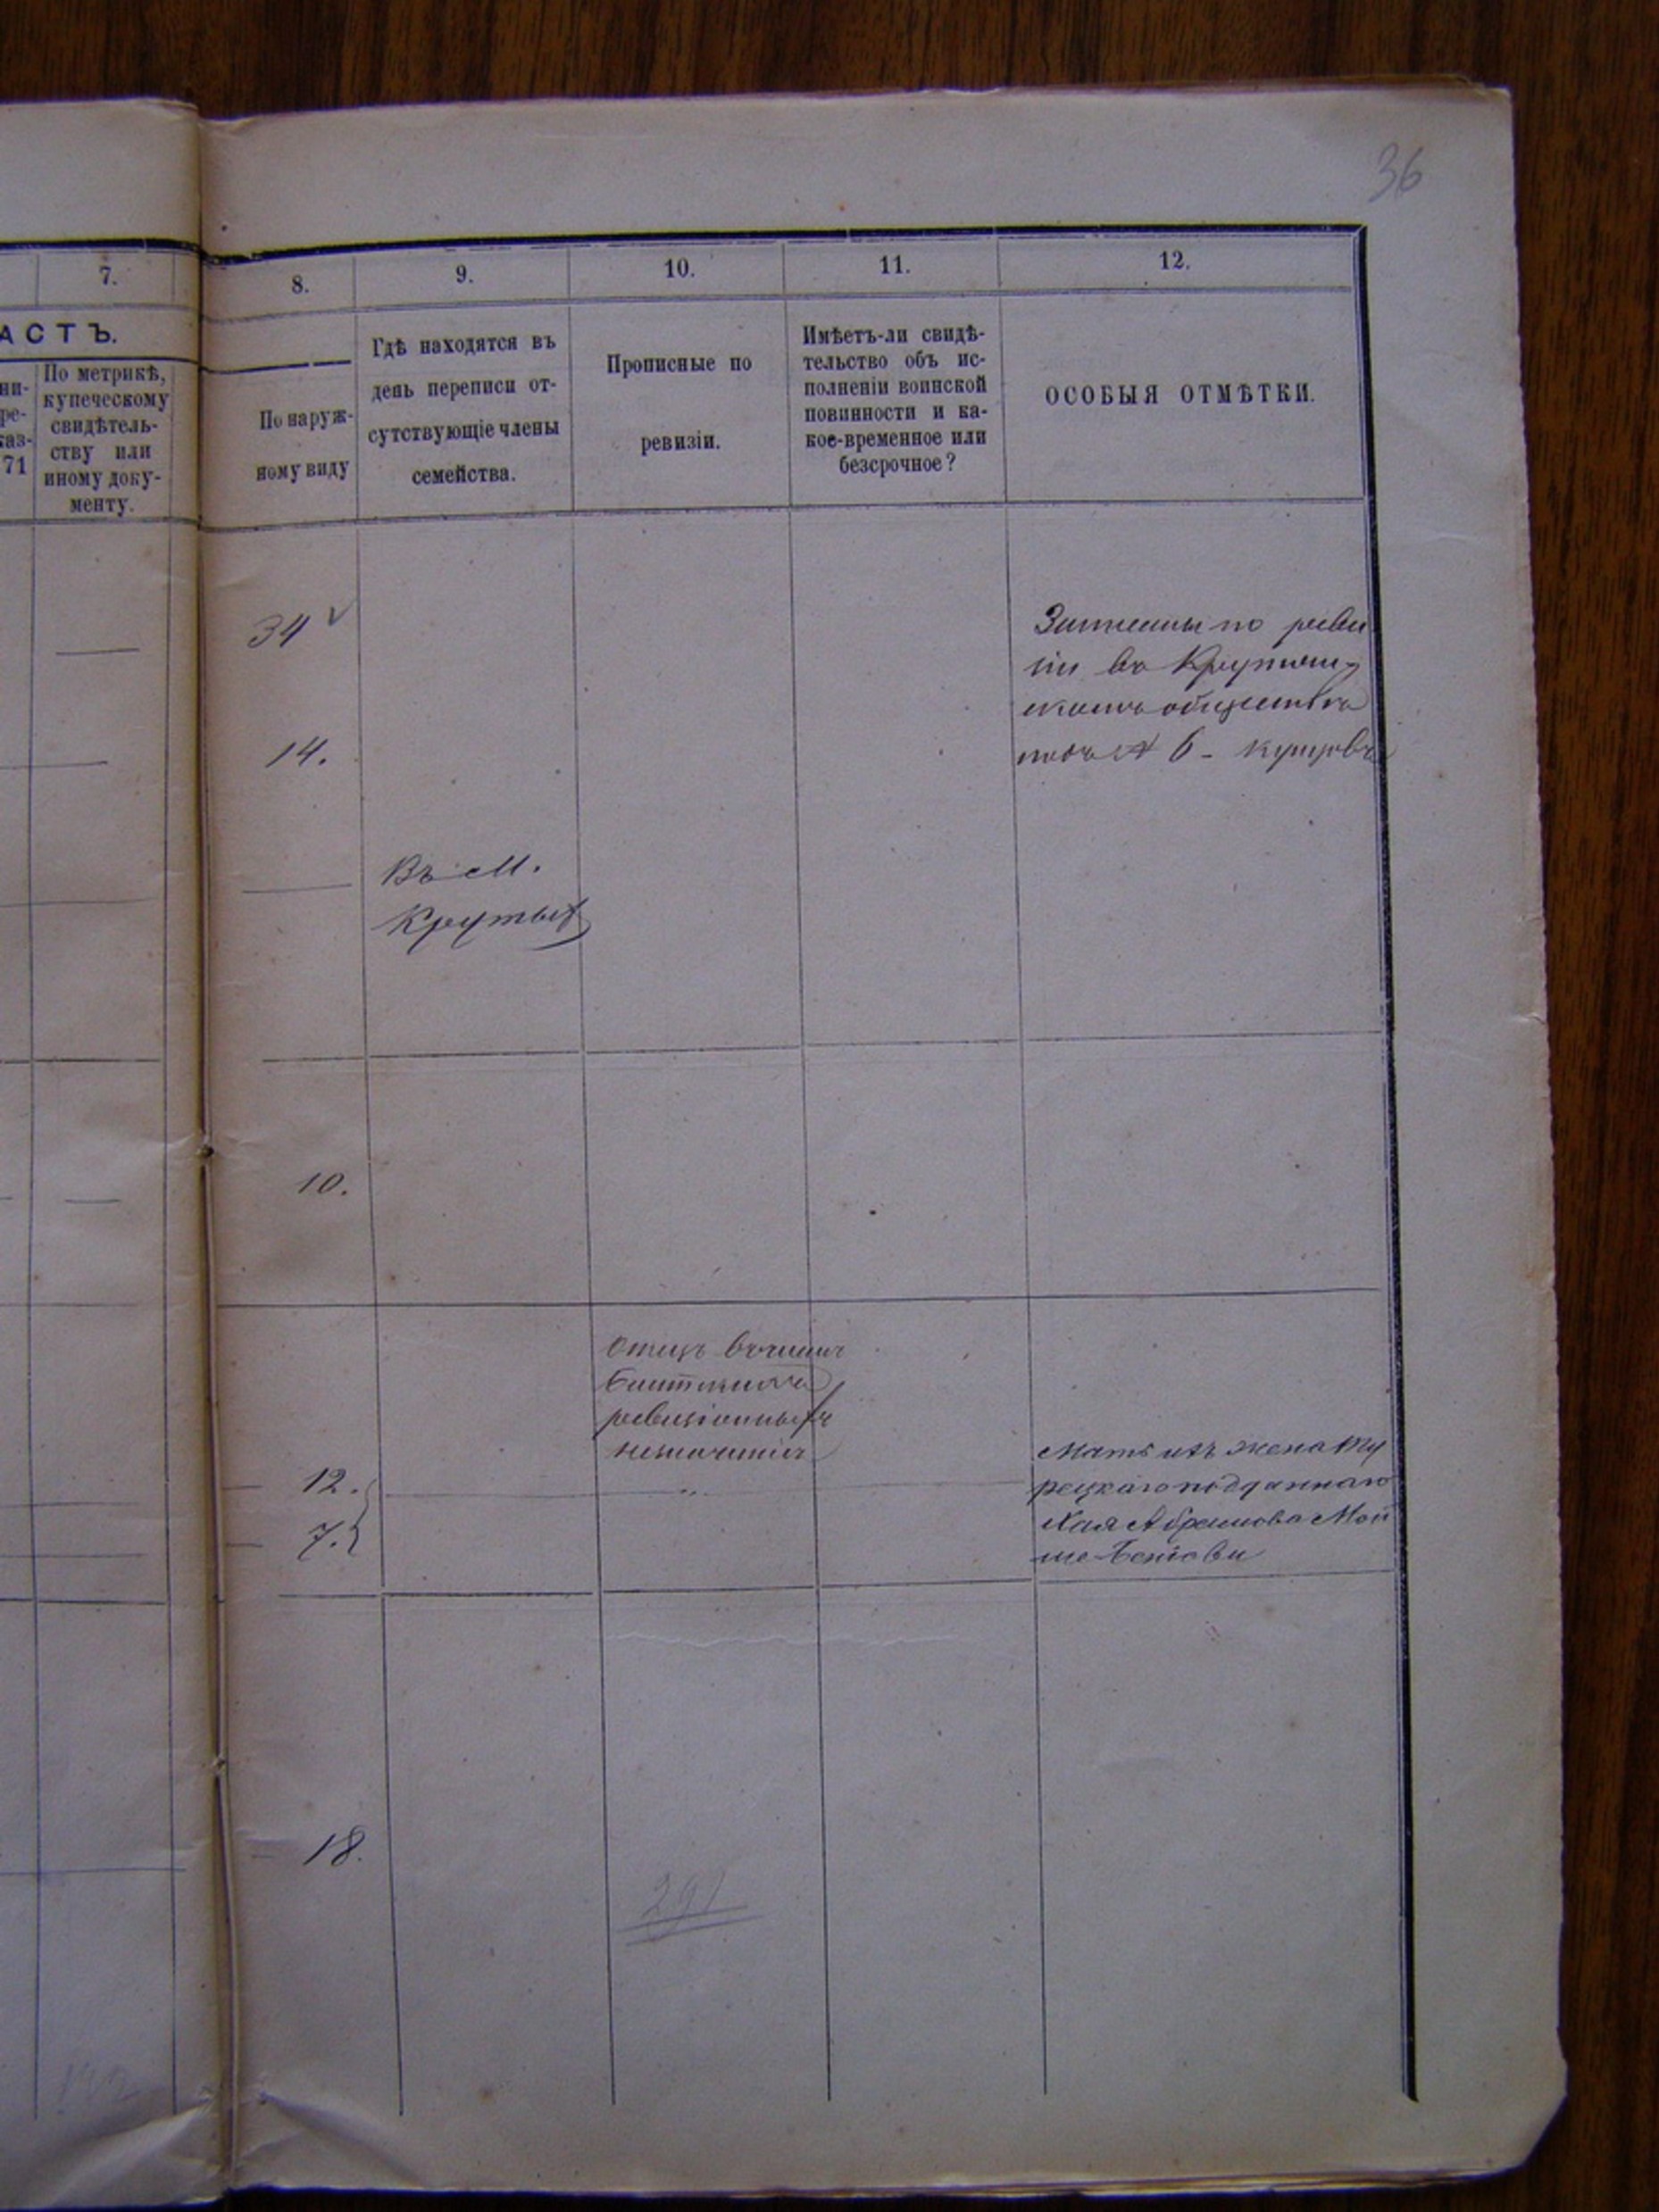 36
7.
8.
9.
10.
11.
12.
АСТЪ.
ни-
ре-
каз-
71
По метрикѣ,
купеческому
свидѣтель-
ству или
иному доку-
менту.
По наруж-
ному виду
Гдѣ находятся въ
день переписи от-
сутствующіе члены
семейства.
Прописные по
ревизіи.
Имѣетъ-ли свидѣ-
тельство объ ис-
полненіи воинской
повинности и ка-
кое-временное или
безсрочное?
ОСОБЫЯ ОТМѢТКИ.
34
по реви
зіи въ
обществѣ
подъ № 6 - купцовъ
14.
Въ м.
Крутыхъ
10.
Отецъ
ревизіонныхъ
12.
7.
Мать ихъ жена Ту
рецкаго подданнаго
Хая Абрамова Мой
ше
18.
291